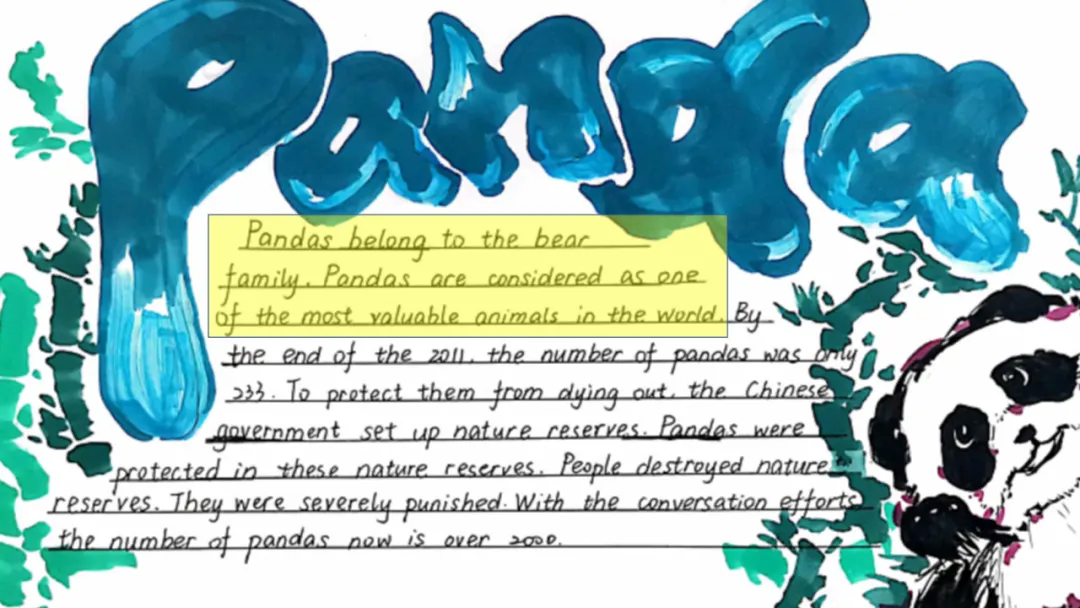 Panda
Pandas belong to the bear
family. Pandas are considered as one
of the most valuable animals in the world. By
the end of the 2011, the number of pandas was only
233. To protect them from dying out, the Chinese
government set up nature reserves. Pandas were
protected in these nature reserves. People destroyed nature
reserves. They were severely punished. With the conversation efforts
the number of pandas now is over 2000.